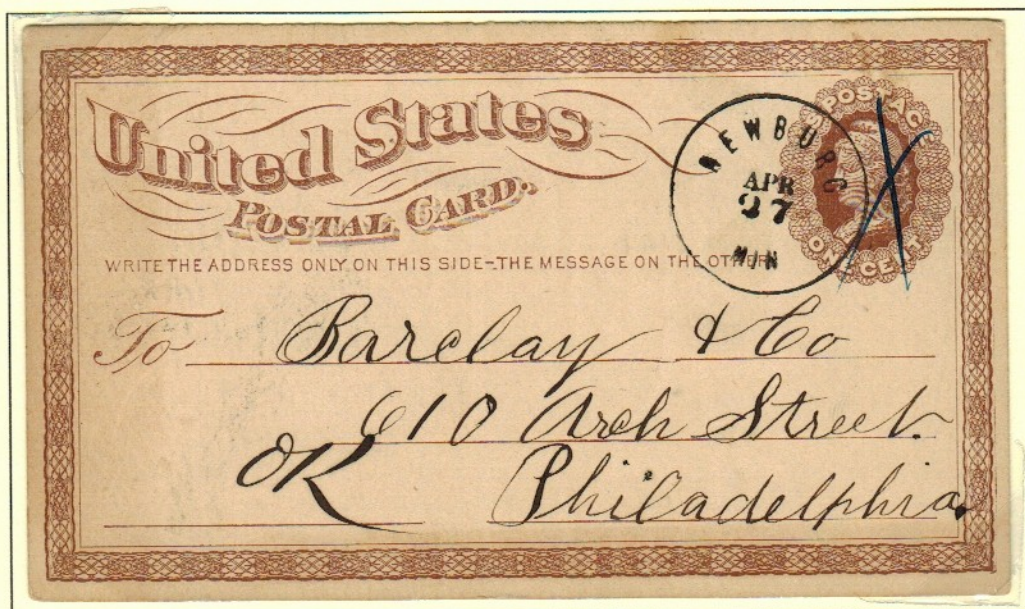 United States
POSTAL CARD.
WRITE THE ADDRESS ONLY ON THIS SIDE-THE MESSAGE ON THE OTHER
POSTAGE
ONE CENT
NEWBURG
APR
27
MIN
To Barclay & Co
610 Arch Street.
OK Philadelphia.